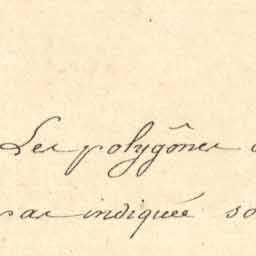 Les polygônes
pas indiquée so